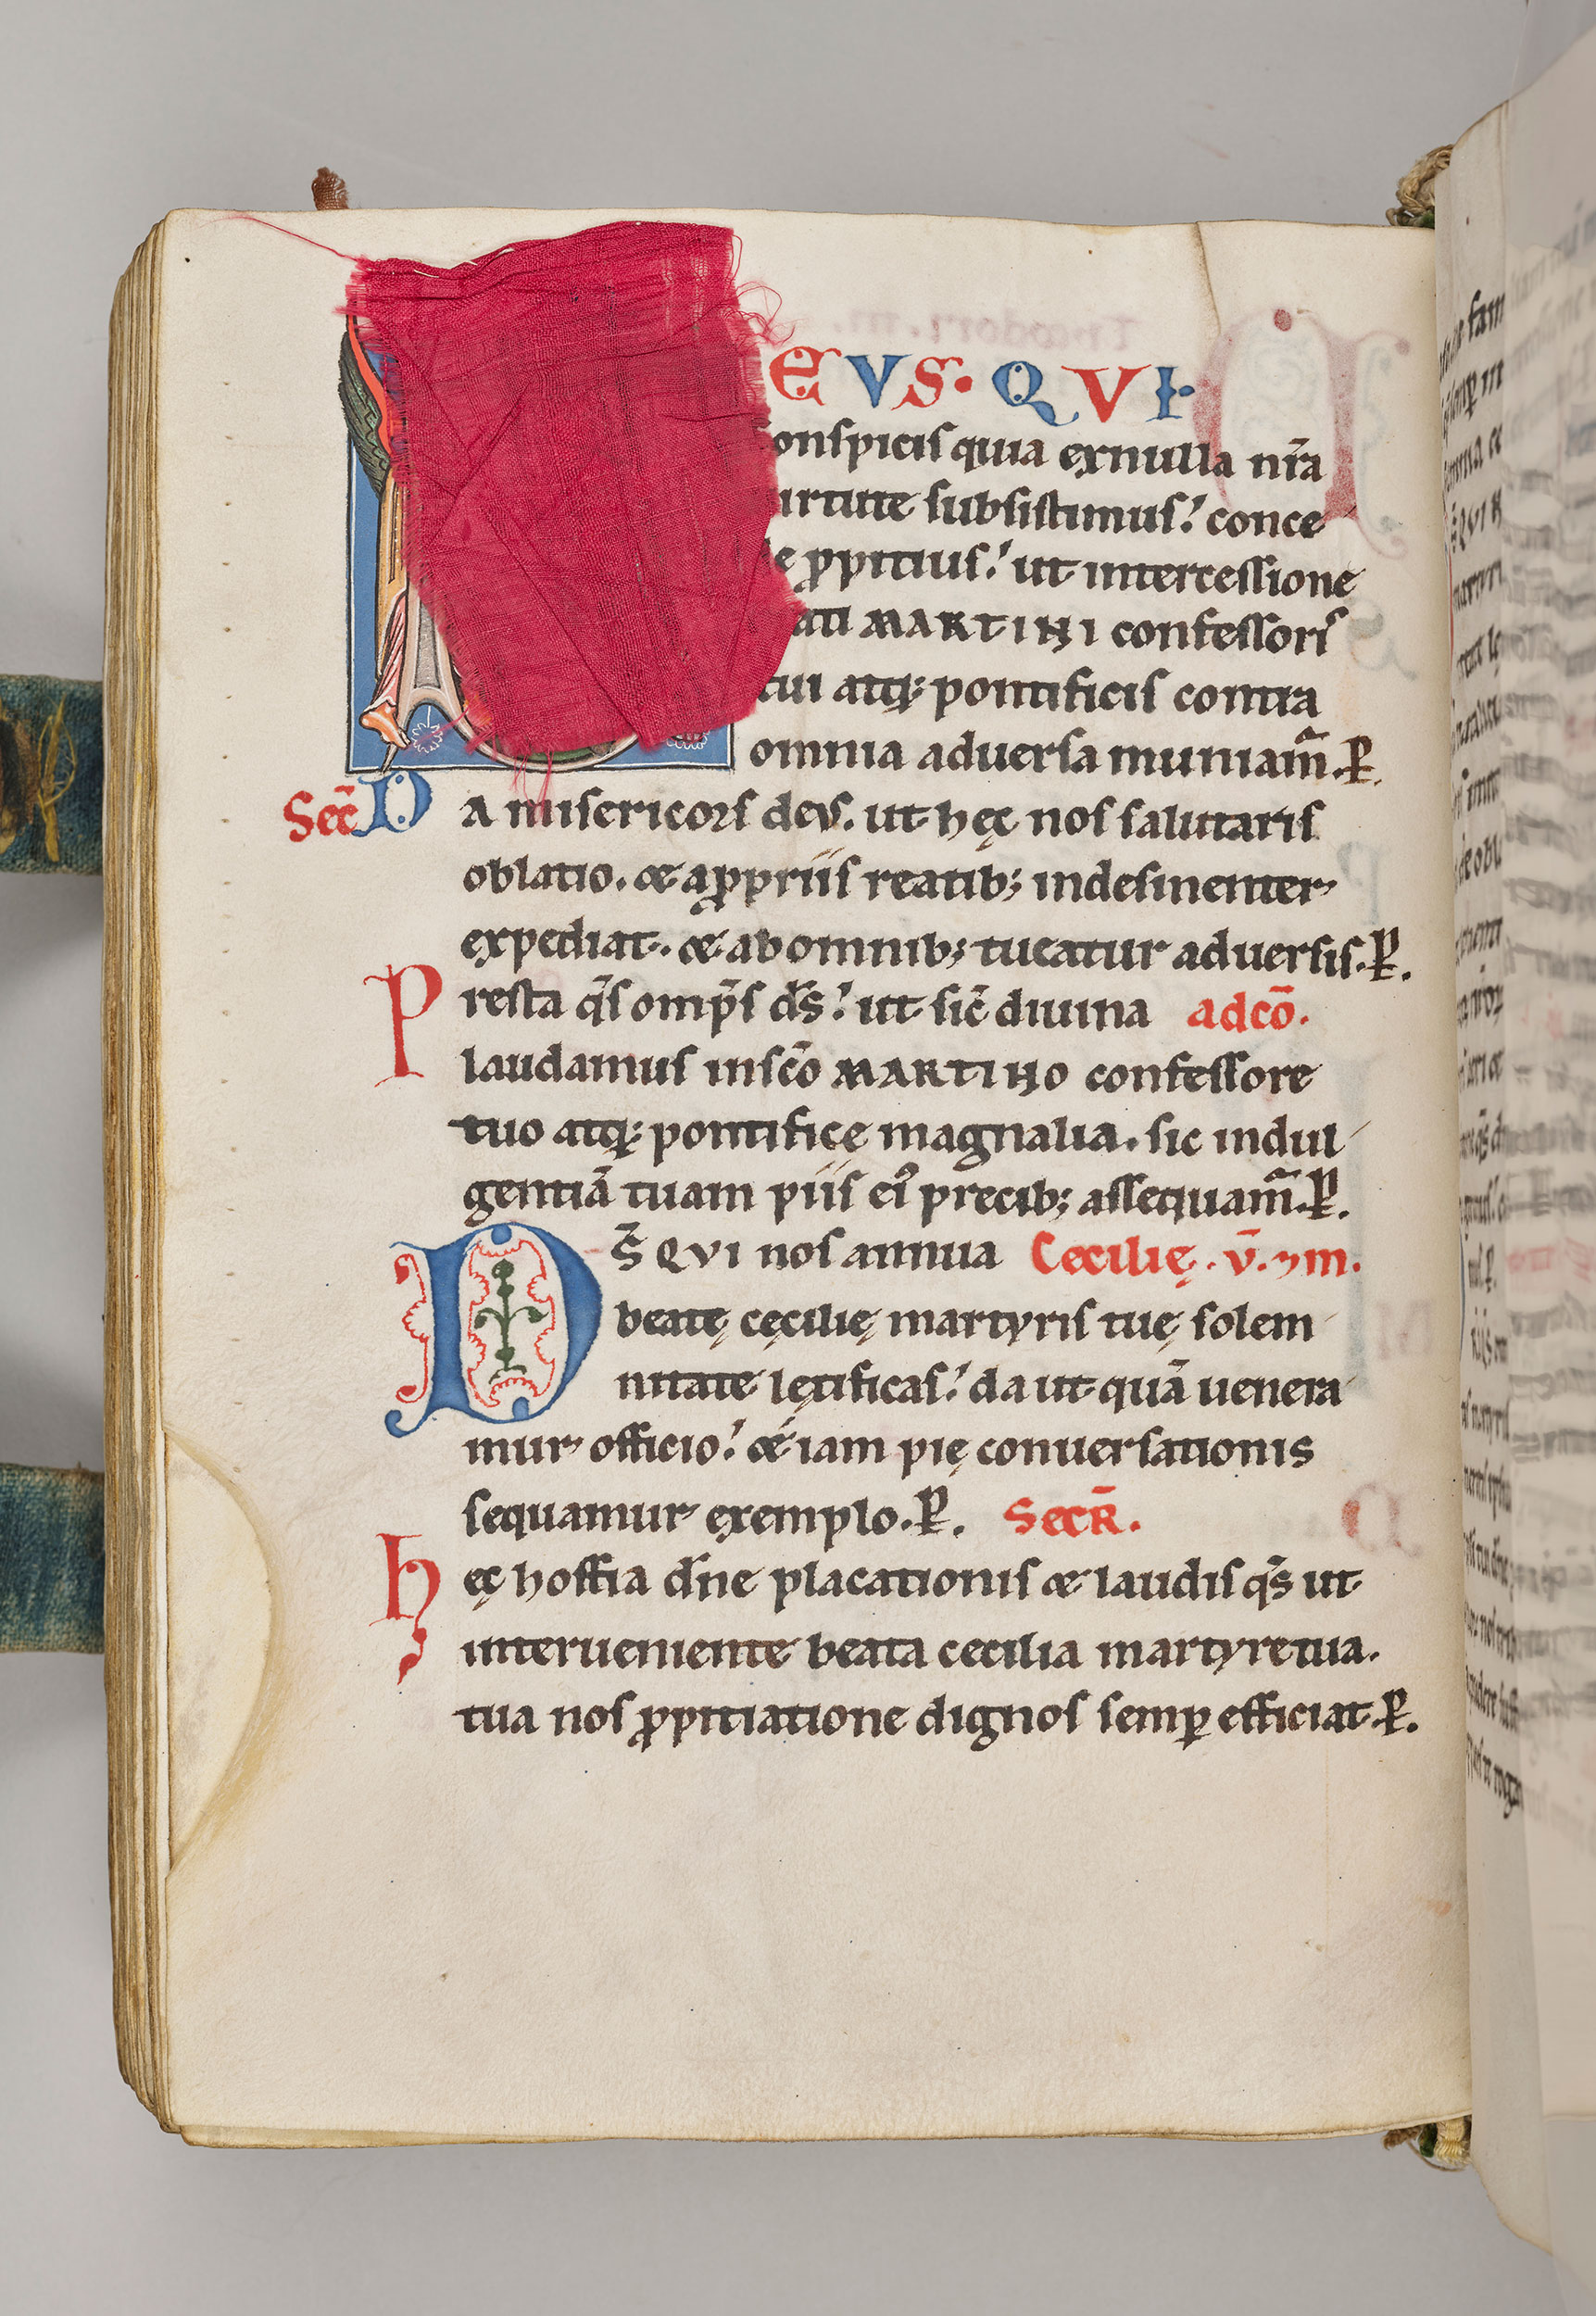 EVS · QVI
onspicis quia ex nulla nr̄a
irtute subsistimus. conce
e ꝓpitius. ut intercessione
ati MARTINI confessoris
tui atq; pontificis contra
omnia aduersa muniam̄. P̱.
Sec̄ D a misericors deus. ut hęc nos salutaris
oblatio. & a ꝓpriis reatib; indesinenter
expediat. & ab omnib; tueatur aduersis. P̱.
P resta q̄s omp̄s d̄s. ut sic̄ diuina ad cō.
laudamus in sc̄o MARTINO confessore
tuo atq; pontifice magnalia. sic indul
gentiā tuam piis ei᾽ precib; assequam̄. P̱.
D S̄ QVI nos annua Cecilię. v̄. ⁊ m.
beatę cęcilię martyris tuę solem
nitate lętificas. da ut quā uenera
mur officio. & iam pię conuersationis
sequamur exemplo. P̱. SecR̄.
h ęc hostia dn̄e placationis & laudis q̄s ut
interueniente beata cecilia martyre tua.
tua nos ꝓpitiatione dignos semꝑ efficiat. P̱.